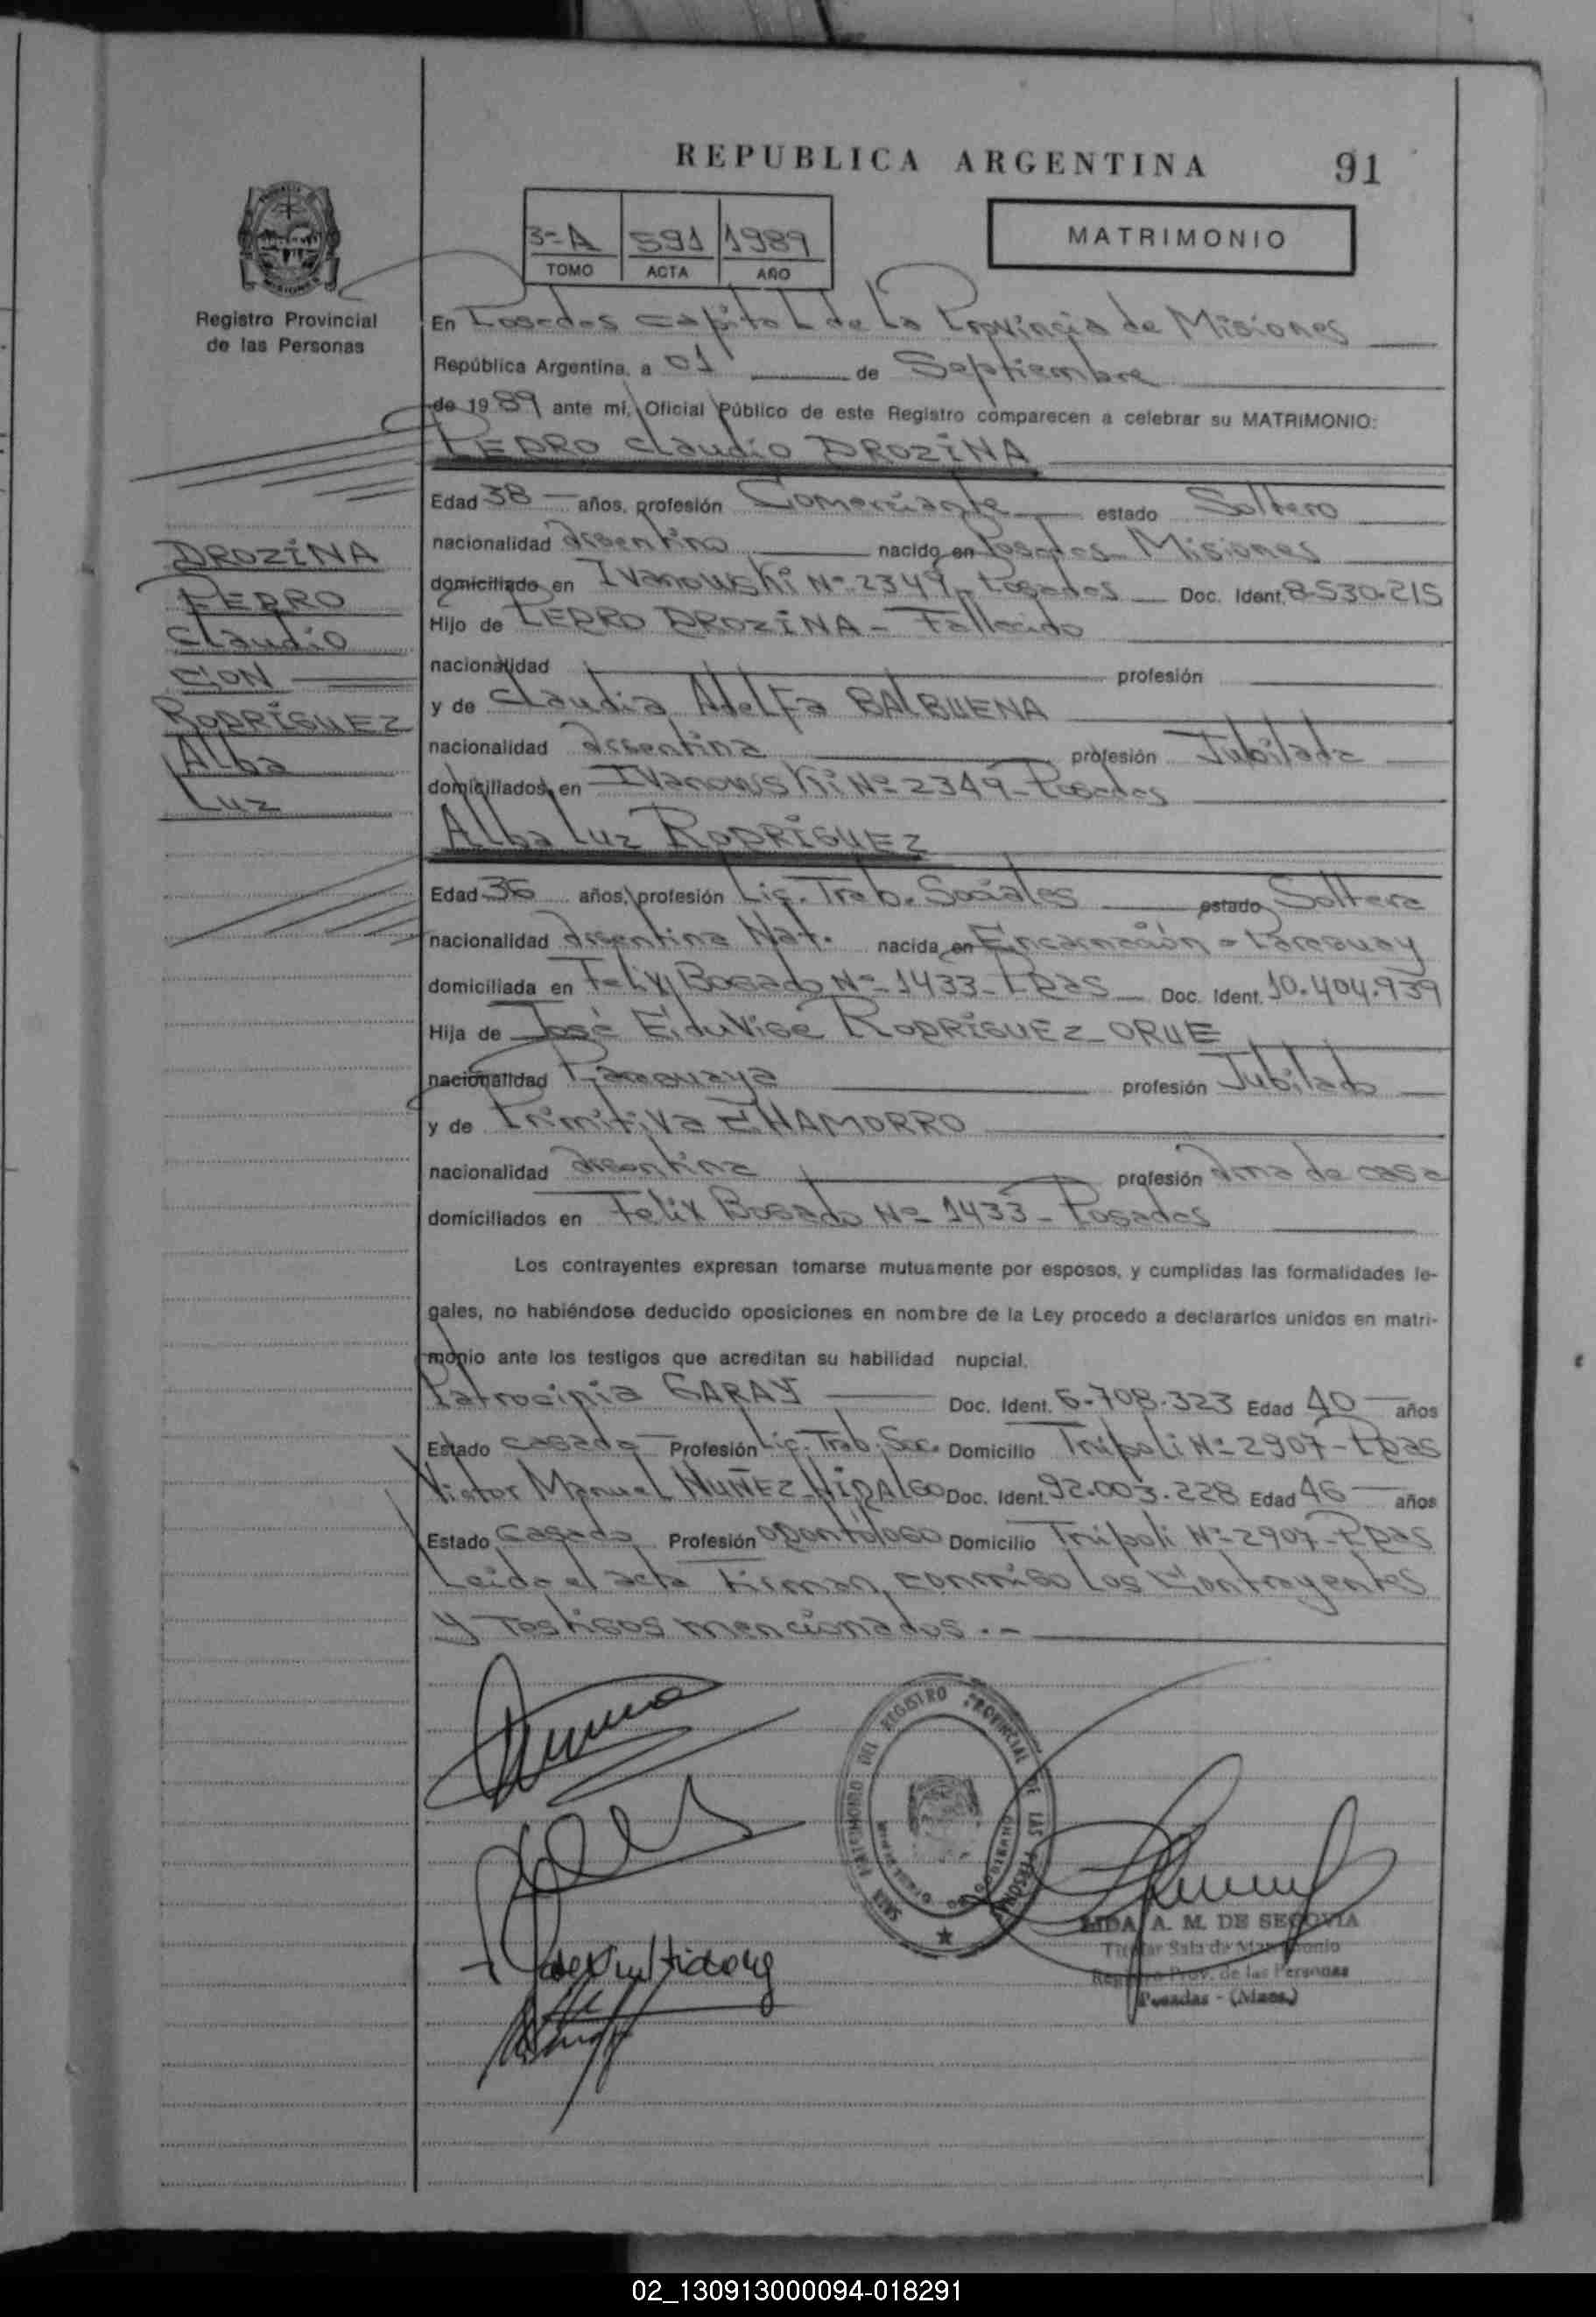 REPUBLICA ARGENTINA 91
3=A 591 1989
TOMO ACTA AÑO
MATRIMONIO
Registro Provincial
de las Personas
En Posadas capital de la Provincia de Misiones
República Argentina, a 01 de Septiembre
de 1989 ante mí, Oficial Público de este Registro comparecen a celebrar su MATRIMONIO:
PEDRO Claudio DROZINA
Edad 38 años, profesión Comerciante estado Soltero
nacionalidad Argentino nacido en Posadas Misiones
domiciliado en Ivanowski Nº 2349 - Posadas Doc. Ident. 8-530-215
Hijo de PEDRO DROZINA - Fallecido
nacionalidad profesión
y de Claudia Adelfa BALBUENA
nacionalidad Argentina profesión Jubilada
domiciliados en Ivanowski Nº 2349 - Posadas
Alba Luz RODRÍGUEZ
Edad 36 años, profesión Lic. Trab. Sociales estado Soltera
nacionalidad Argentina Nat. nacida en Encarnación - Paraguay
domiciliada en Felix Bogado Nº 1433 - Pdas Doc. Ident. 10.404.939
Hija de José Eduvige RODRIGUEZ - ORUE
nacionalidad Paraguaya profesión Jubilado
y de Primitiva CHAMORRO
nacionalidad Argentina profesión Ama de casa
domiciliados en Felix Bogado Nº 1433 - Posadas
Los contrayentes expresan tomarse mutuamente por esposos, y cumplidas las formalidades le-
gales, no habiéndose deducido oposiciones en nombre de la Ley procedo a declararlos unidos en matri-
monio ante los testigos que acreditan su habilidad nupcial.
Patrocinia GARAY Doc. Ident. 6-708.323 Edad 40 años
Estado casada Profesión Lic. Trab. Soc. Domicilio Trípoli Nº 2907 - Pdas
Victor Manuel NUÑEZ HIDALGO Doc. Ident. 92.003.228 Edad 46 años
Estado Casado Profesión Odontólogo Domicilio Trípoli Nº 2907 - Pdas
Leido el acta Firman conmigo los Contrayentes
y Testigos mencionados.-
DROZINA
PEDRO
Claudio
CON
RODRÍGUEZ
Alba
Luz
SALA MATRIMONIO DEL REGISTRO PROVINCIAL DE LAS PERSONAS
A. M. DE SEGOVIA
Titular Sala de Matrimonio
Registro Prov. de las Personas
Posadas - (Mnes.)
02_130913000094-018291